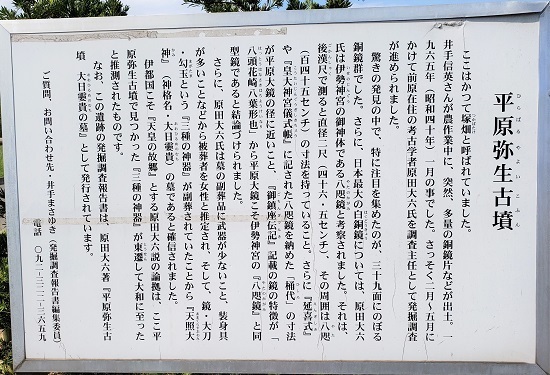 平原弥生古墳
ひらばるやよいこふん
ここはかつて塚畑と呼ばれていました。
井手信英さんが農作業中に、突然、多量の銅鏡片などが出土。一
九六五年（昭和四十年）一月の事でした。さっそく二月〜五月に
かけて前原在住の考古学者原田大六氏を調査主任として発掘調査
が進められました。
驚きの発見の中で、特に注目を集めたのが、三十九面にのぼる
銅鏡群でした。さらに、日本最大の白銅鏡については、原田大六
氏は伊勢神宮の御神体である八咫鏡と考察されました。それは、
後漢尺で測ると直径二尺（四十六・五センチ）、その周囲は八咫
（百四十五センチ）の寸法を持っていること。さらに『延喜式』
や『皇大神宮儀式帳』に記された八咫鏡を納めた「桶代」の寸法
が平原大鏡の径に近いこと、『御鎮座伝記』記載の鏡の特徴が「
八頭花崎八葉形也」から平原大鏡こそ伊勢神宮の『八咫鏡』と同
型鏡であると結論づけられました。
さらに、原田大六氏は墓の副葬品に武器が少ないこと、装身具
が多いことなどから被葬者を女性と推定され、そして、鏡・大刀
・勾玉という『三種の神器』が副葬されていたことから『天照大
神』（神格名・大日孁貴）の墓であると確信されました。
伊都国こそ『天皇の故郷』とする原田大六説の論拠は、ここ平
原弥生古墳で見つかった『三種の神器』が東遷して大和に至った
と推測されたものです。
なお、この遺跡の発掘調査報告書は、原田大六著『平原弥生古
墳　大日孁貴の墓』として発行されています。
ご質問、お問い合わせ先・井手まさゆき（発掘調査報告書編集委員）
電話　〇九二-三二二-三六五九